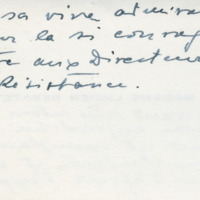 sa vive admira
la si courag
aux Directeu
Résistance.